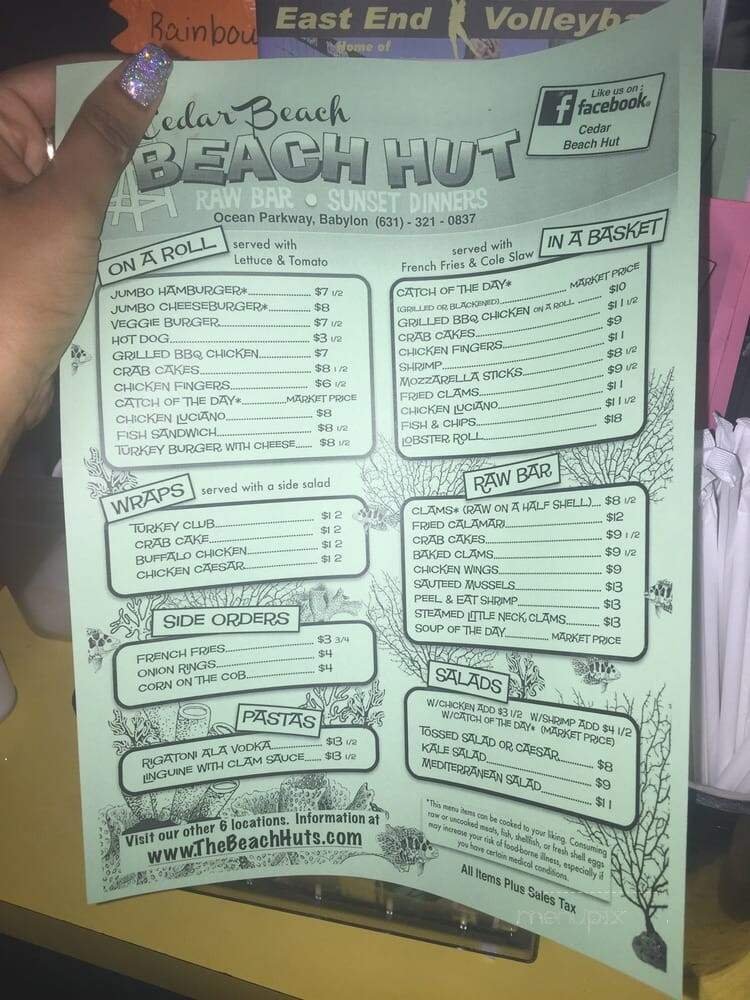 Rainbow
East End Volleyb
Home of
Cedar Beach
BEACH HUT
RAW BAR • SUNSET DINNERS
Ocean Parkway, Babylon (631) - 321 - 0837
Like us on :
f facebook®
Cedar
Beach Hut
ON A ROLL
served with
Lettuce & Tomato
JUMBO HAMBURGER* $7 1/2
JUMBO CHEESEBURGER* $8
VEGGIE BURGER $7 1/2
HOT DOG $3 1/2
GRILLED BBQ CHICKEN $7
CRAB CAKES $8 1/2
CHICKEN FINGERS $6 1/2
CATCH OF THE DAY* MARKET PRICE
CHICKEN LUCIANO $8
FISH SANDWICH $8 1/2
TURKEY BURGER WITH CHEESE $8 1/2
WRAPS
served with a side salad
TURKEY CLUB $12
CRAB CAKE $12
BUFFALO CHICKEN $12
CHICKEN CAESAR $12
SIDE ORDERS
FRENCH FRIES $3 3/4
ONION RINGS $4
CORN ON THE COB $4
PASTAS
RIGATONI ALA VODKA $13 1/2
LINGUINE WITH CLAM SAUCE $13 1/2
Visit our other 6 locations. Information at
www.TheBeachHuts.com
IN A BASKET
served with
French Fries & Cole Slaw
CATCH OF THE DAY* MARKET PRICE
(GRILLED OR BLACKENED)
GRILLED BBQ CHICKEN ON A ROLL $10
CRAB CAKES $11 1/2
CHICKEN FINGERS $9
SHRIMP $11
MOZZARELLA STICKS $8 1/2
FRIED CLAMS $9 1/2
CHICKEN LUCIANO $11
FISH & CHIPS $11 1/2
LOBSTER ROLL $18
RAW BAR
CLAMS* (RAW ON A HALF SHELL) $8 1/2
FRIED CALAMARI $12
CRAB CAKES $9 1/2
BAKED CLAMS $9 1/2
CHICKEN WINGS $9
SAUTEED MUSSELS $13
PEEL & EAT SHRIMP $13
STEAMED LITTLE NECK CLAMS $13
SOUP OF THE DAY MARKET PRICE
SALADS
W/CHICKEN ADD $3 1/2 W/SHRIMP ADD $4 1/2
W/CATCH OF THE DAY* (MARKET PRICE)
TOSSED SALAD OR CAESAR $8
KALE SALAD $9
MEDITERRANEAN SALAD $11
*This menu items can be cooked to your liking. Consuming
raw or uncooked meats, fish, shellfish, or fresh shell eggs
may increase your risk of foodborne illness, especially if
you have certain medical conditions.
All Items Plus Sales Tax
menupix